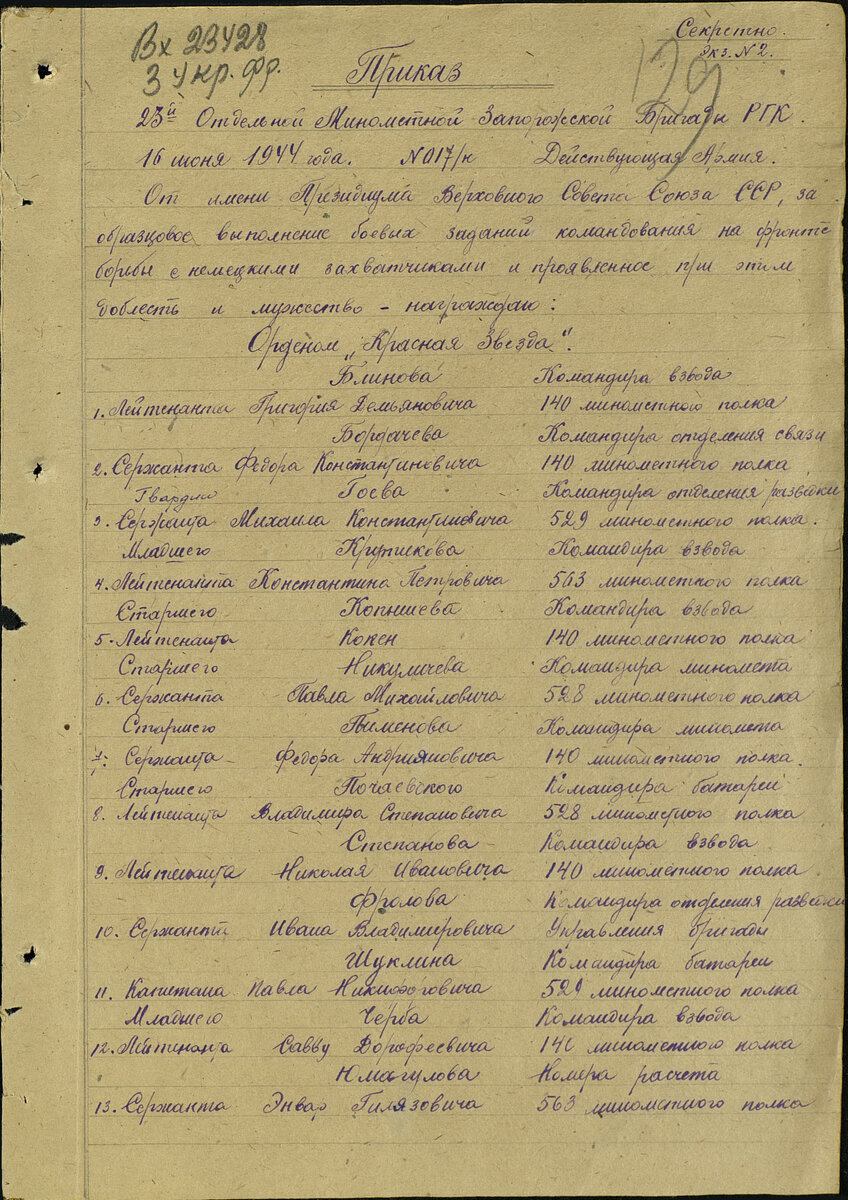 Вх 23428
3 Укр. Фр.
Секретно.
Экз. N 2.
129
Приказ
23й Отдельной Минометной Запорожской Бригады РГК.
16 июня 1944 года. N 017/н Действующая Армия.
От имени Президиума Верховного Совета Союза ССР, за
образцовое выполнение боевых заданий командования на фронте
борьбы с немецкими захватчиками и проявленное при этом
доблесть и мужество - награждаю:
Орденом „Красная Звезда".
Блинова Командира взвода
1. Лейтенанта Григория Демьяновича 140 минометного полка
Бордачева Командира отделения связи
2. Сержанта Федора Константиновича 140 минометного полка
Гвардии Гоева Командира отделения разведки
3. Сержанта Михаила Константиновича 529 минометного полка.
Младшего Крутикова Командира взвода
4. Лейтенанта Константина Петровича 563 минометного полка
Старшего Копышева Командира взвода
5. Лейтенанта Кокен 140 минометного полка
Старшего Никуличева Командира миномета
6. Сержанта Павла Михайловича 528 минометного полка
Старшего Пименова Командира миномета
7. Сержанта Федора Андрияновича 140 минометного полка.
Старшего Почаевского Командира батареи
8. Лейтенанта Владимира Степановича 528 минометного полка
Степанова Командира взвода
9. Лейтенанта Николая Ивановича 140 минометного полка
Фролова Командира отделения разведки
10. Сержанта Ивана Владимировича Управления бригады
Шуклина Командира батареи
11. Капитана Павла Никифоровича 529 минометного полка
Младшего Черба Командира взвода
12. Лейтенанта Савву Дорофеевича 140 минометного полка
Юмагулова Номера расчета
13. Сержанта Энвар Гилязовича 563 минометного полка